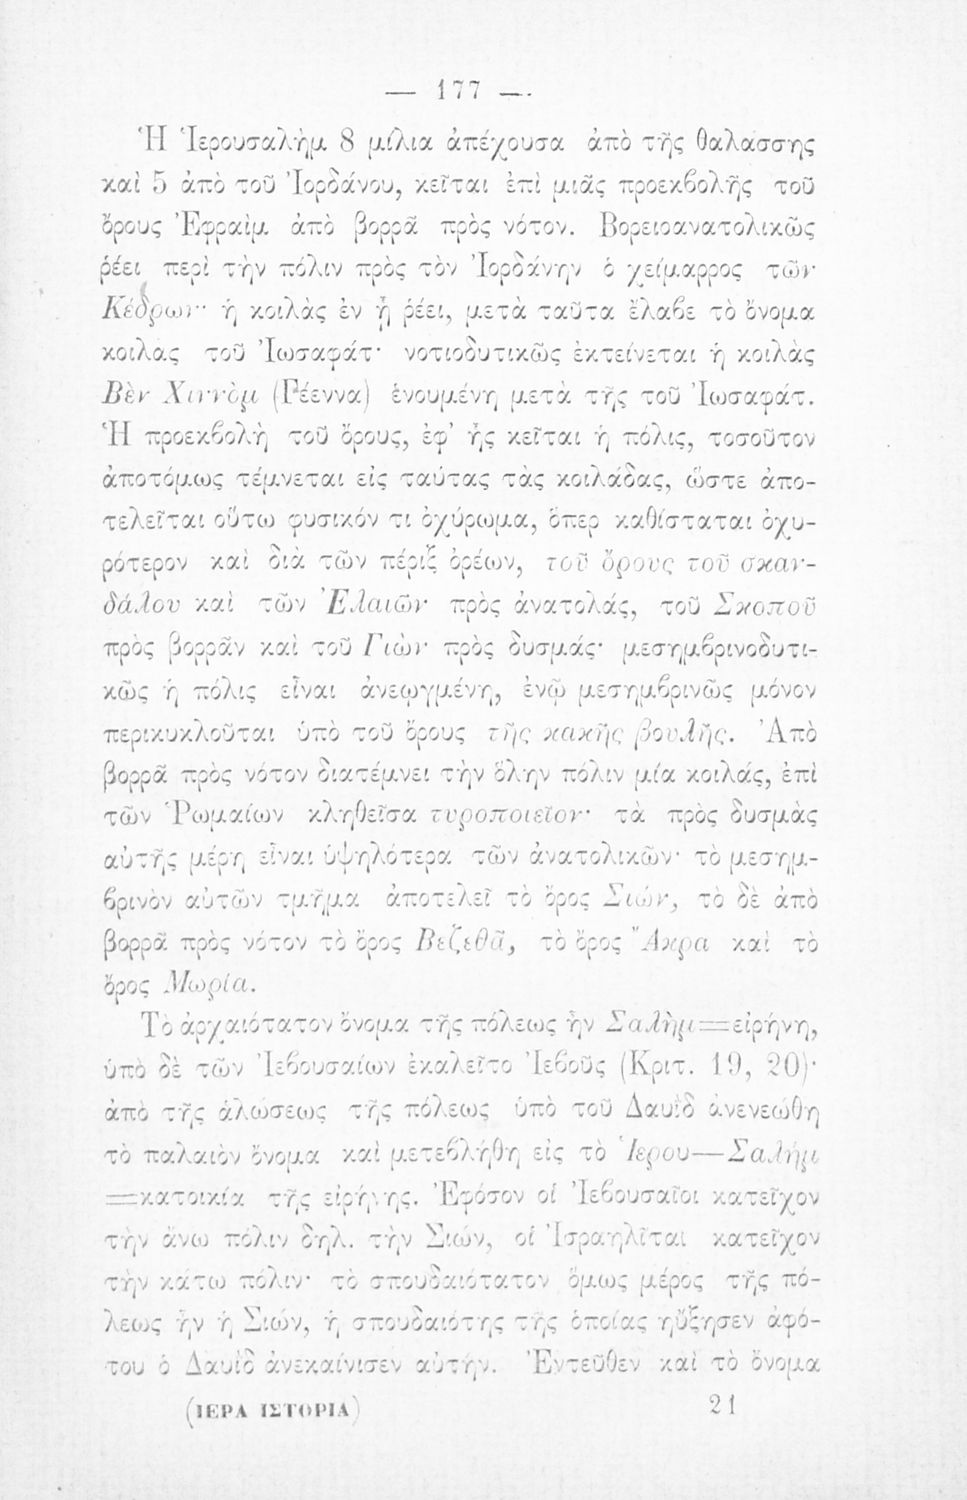 — 177 —
Ἡ Ἱερουσαλὴμ 8 μίλια ἀπέχουσα ἀπὸ τῆς θαλάσσης
καὶ 5 ἀπὸ τοῦ Ἰορδάνου, κεῖται ἐπὶ μιᾶς προεκβολῆς τοῦ
ὄρους Ἐφραὶμ ἀπὸ βορρᾶ πρὸς νότον. Βορειοανατολικῶς
ῥέει περὶ τὴν πόλιν πρὸς τὸν Ἰορδάνην ὁ χείμαρρος τῶν
Κέδρων· ἡ κοιλὰς ἐν ᾗ ῥέει, μετὰ ταῦτα ἔλαβε τὸ ὄνομα
κοιλὰς τοῦ Ἰωσαφάτ· νοτιοδυτικῶς ἐκτείνεται ἡ κοιλὰς
Βὲν Χιννὸμ (Γέεννα) ἑνουμένη μετὰ τῆς τοῦ Ἰωσαφάτ.
Ἡ προεκβολὴ τοῦ ὄρους, ἐφ' ἧς κεῖται ἡ πόλις, τοσοῦτον
ἀποτόμως τέμνεται εἰς ταύτας τὰς κοιλάδας, ὥστε ἀπο-
τελεῖται οὕτω φυσικόν τι ὀχύρωμα, ὅπερ καθίσταται ὀχυ-
ρότερον καὶ διὰ τῶν πέριξ ὀρέων, τοῦ ὄρους τοῦ σκαν-
δάλου καὶ τῶν Ἐλαιῶν πρὸς ἀνατολάς, τοῦ Σκοποῦ
πρὸς βορρᾶν καὶ τοῦ Γιὼν πρὸς δυσμάς· μεσημβρινοδυτι-
κῶς ἡ πόλις εἶναι ἀνεῳγμένη, ἐνῷ μεσημβρινῶς μόνον
περικυκλοῦται ὑπὸ τοῦ ὄρους τῆς κακῆς βουλῆς. Ἀπὸ
βορρᾶ πρὸς νότον διατέμνει τὴν ὅλην πόλιν μία κοιλάς, ἐπὶ
τῶν Ῥωμαίων κληθεῖσα τυροποιεῖον· τὰ πρὸς δυσμὰς
αὐτῆς μέρη εἶναι ὑψηλότερα τῶν ἀνατολικῶν· τὸ μεσημ-
βρινὸν αὐτῶν τμῆμα ἀποτελεῖ τὸ ὄρος Σιών, τὸ δὲ ἀπὸ
βορρᾶ πρὸς νότον τὸ ὄρος Βεζεθᾶ, τὸ ὄρος Ἄκρα καὶ τὸ
ὄρος Μωρία.
Τὸ ἀρχαιότατον ὄνομα τῆς πόλεως ἦν Σαλὴμ=εἰρήνη,
ὑπὸ δὲ τῶν Ἰεβουσαίων ἐκαλεῖτο Ἰεβοῦς (Κριτ. 19, 20)·
ἀπὸ τῆς ἁλώσεως τῆς πόλεως ὑπὸ τοῦ Δαυὶδ ἀνενεώθη
τὸ παλαιὸν ὄνομα καὶ μετεβλήθη εἰς τὸ Ἱερου—Σαλὴμ
=κατοικία τῆς εἰρήνης. Ἐφόσον οἱ Ἰεβουσαῖοι κατεῖχον
τὴν ἄνω πόλιν δηλ. τὴν Σιών, οἱ Ἰσραηλῖται κατεῖχον
τὴν κάτω πόλιν· τὸ σπουδαιότατον ὅμως μέρος τῆς πό-
λεως ἦν ἡ Σιών, ἡ σπουδαιότης τῆς ὁποίας ηὔξησεν ἀφό-
του ὁ Δαυὶδ ἀνεκαίνισεν αὐτήν. Ἐντεῦθεν καὶ τὸ ὄνομα
(ΙΕΡΑ ΙΣΤΟΡΙΑ) 21